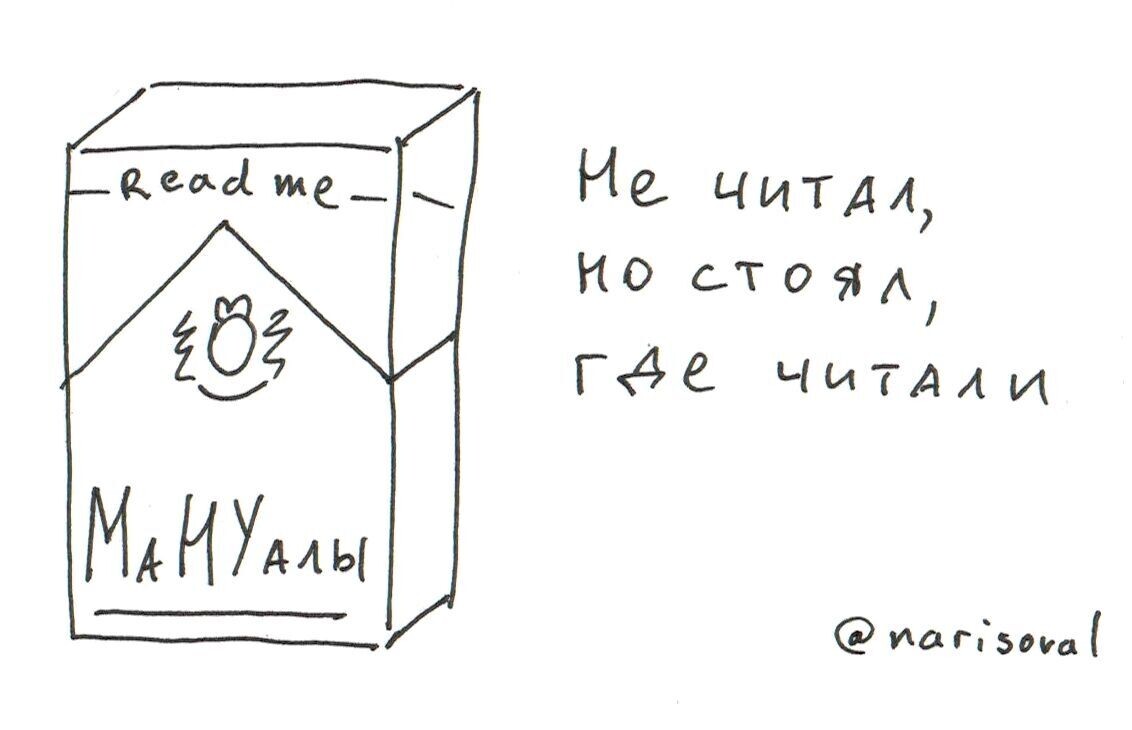 Read me
МаНУалы
Не читал,
но стоял,
где читали
@narisoval